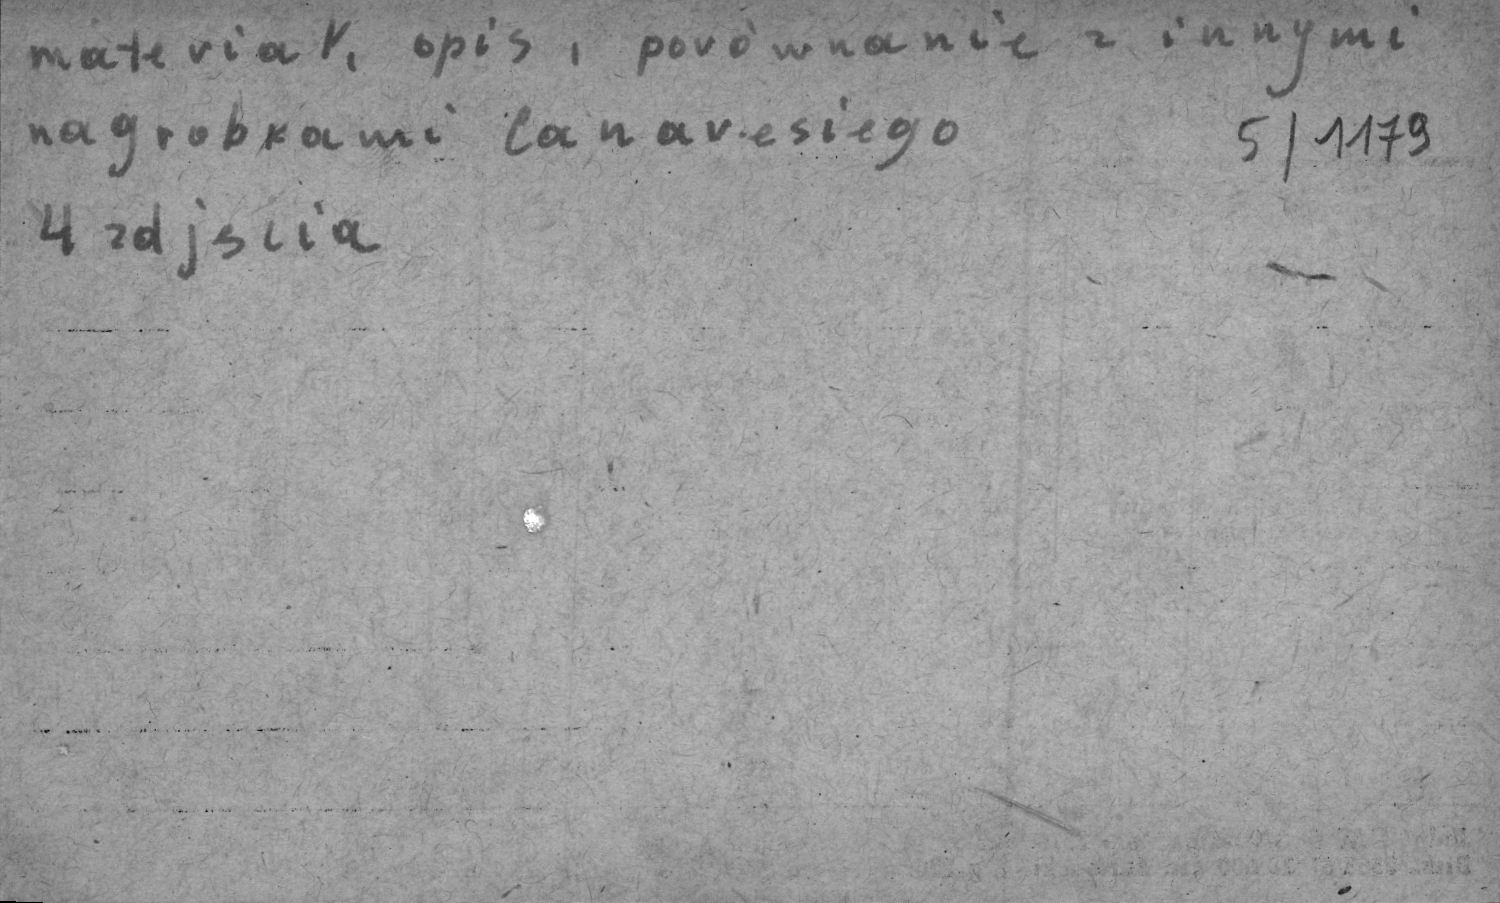 materiał, opis, porównanie z innymi
nagrobkami Canavesiego
5/1179
4 zdjscia